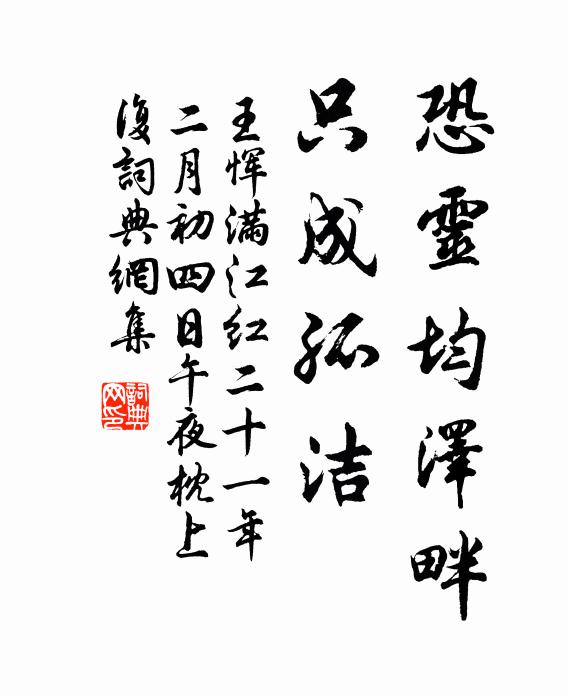 恐靈均澤畔
只成孤洁
王恽满江红二十一年
二月初四日午夜枕上
復詞典網集
詞典
网印